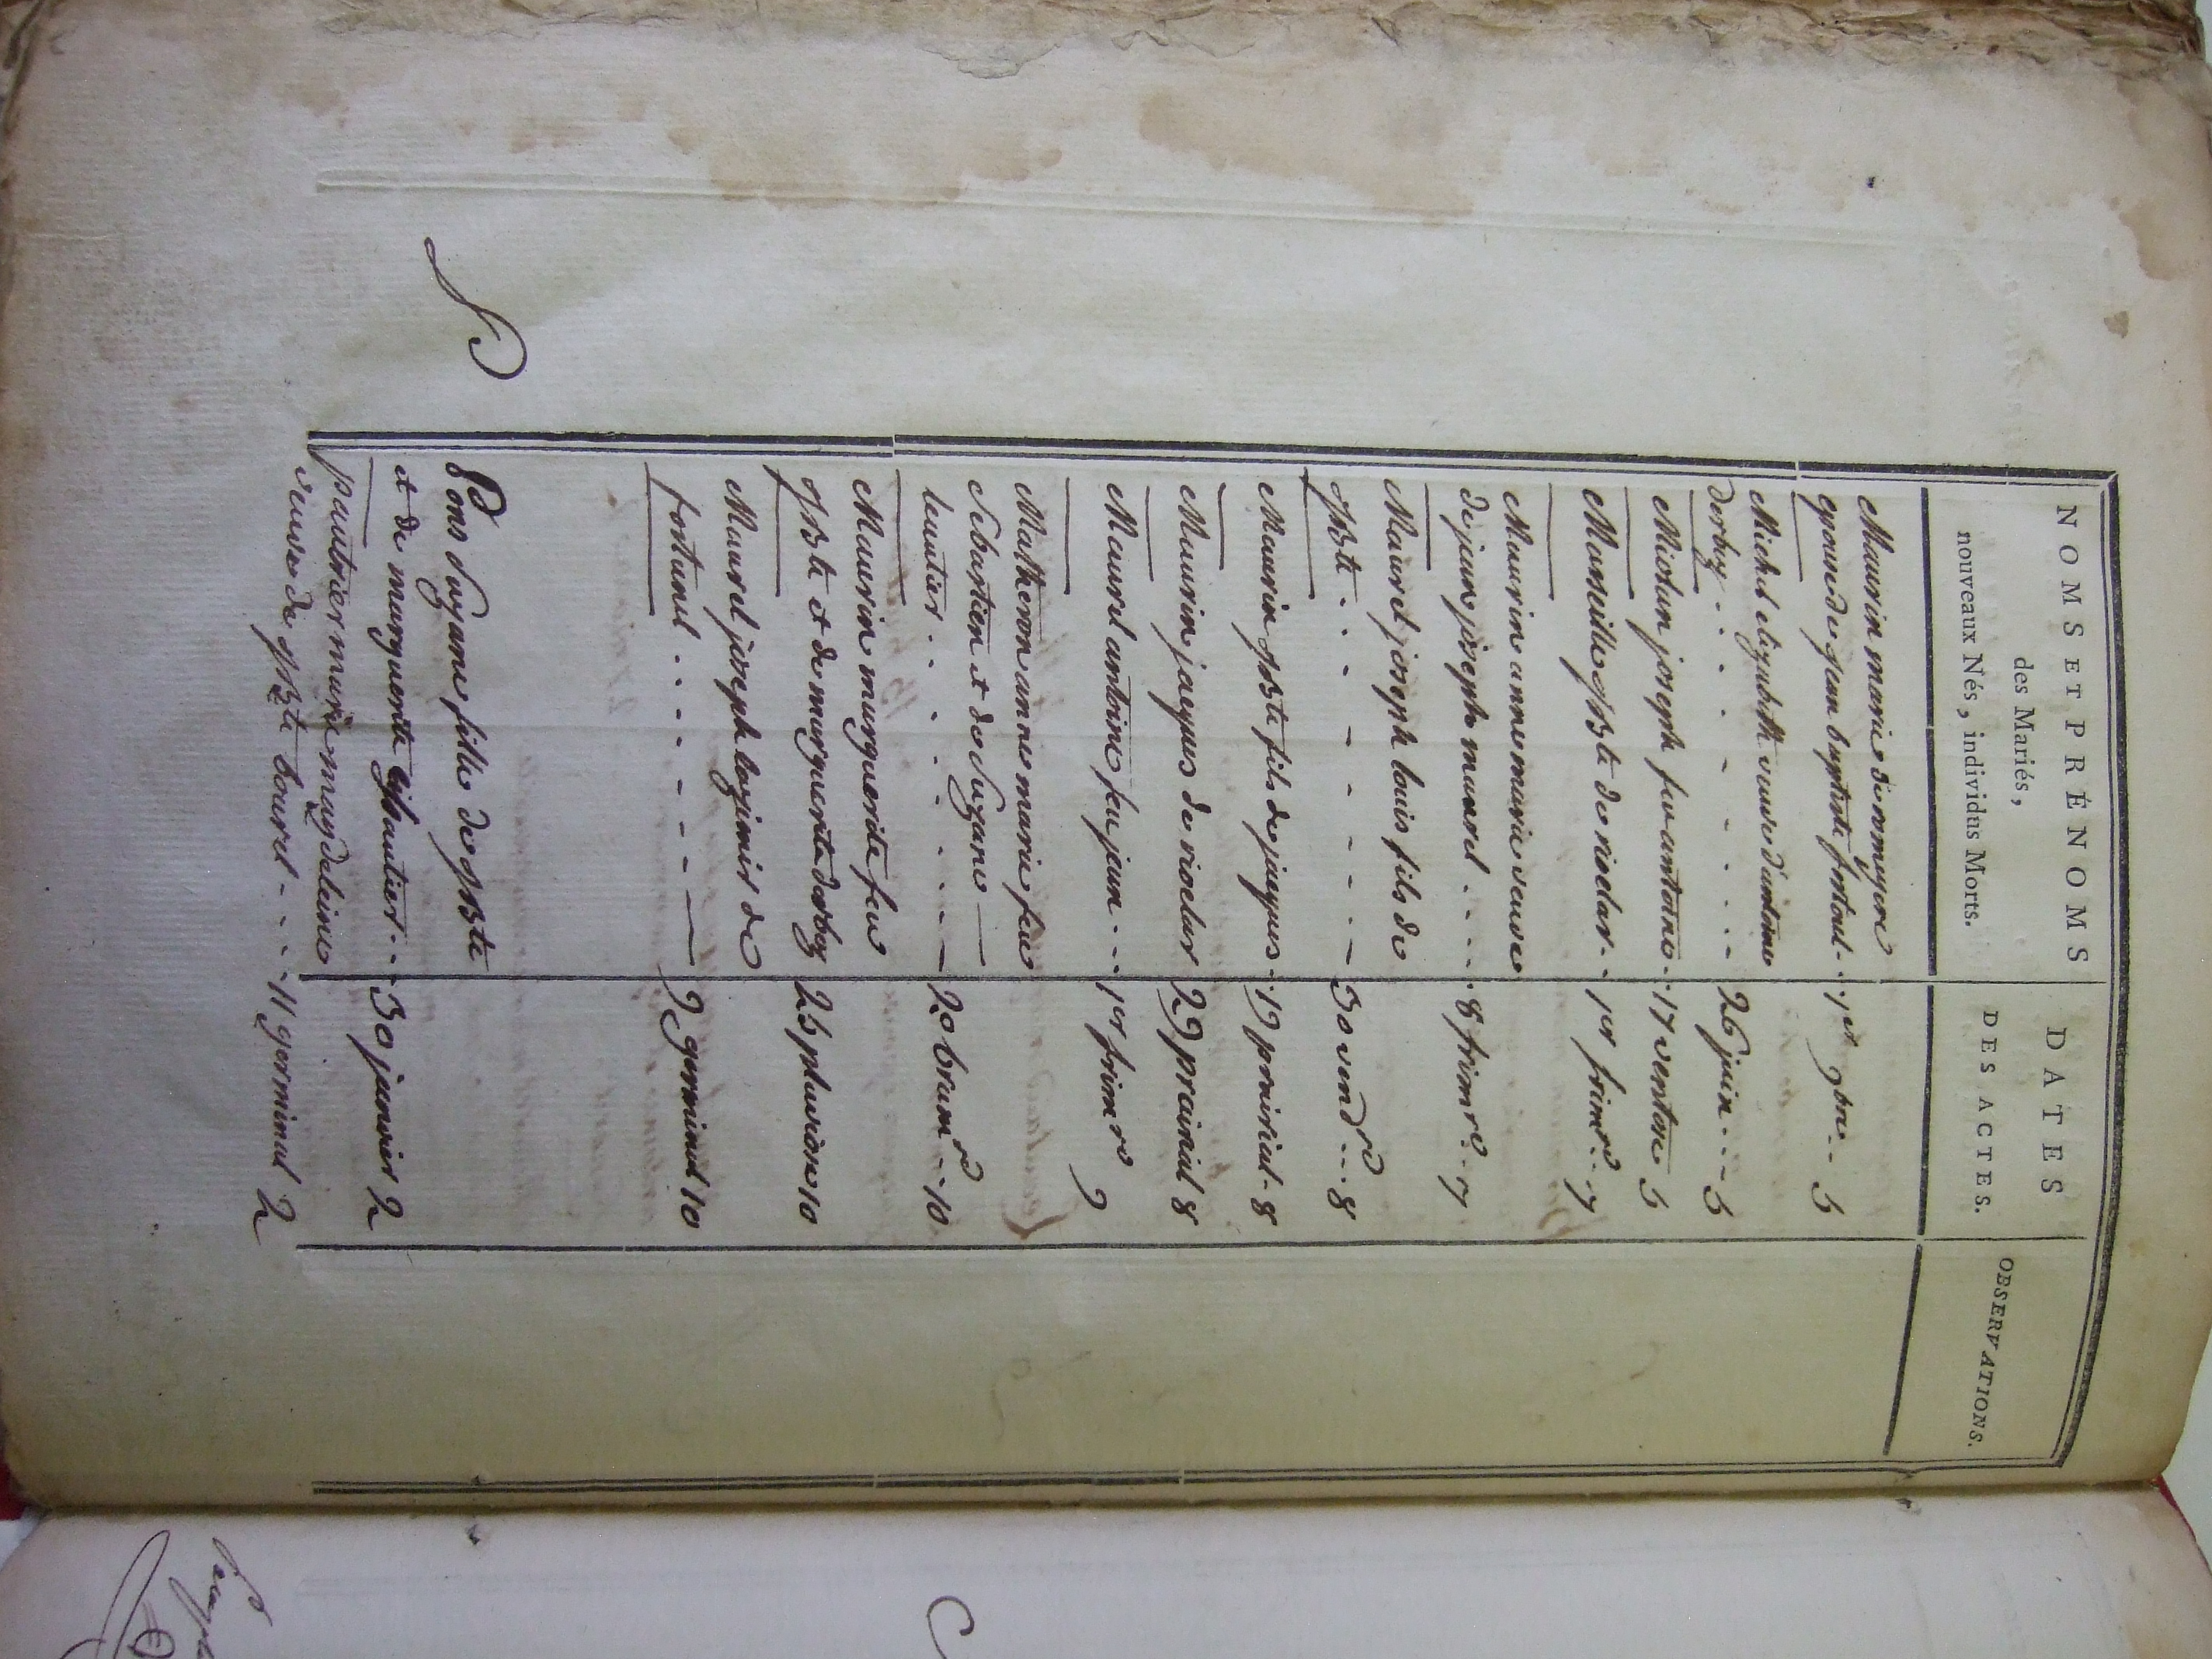 NOMS ET PRÉNOMS
des Mariés,
nouveaux Nés, individus Morts.
DATES
DES ACTES.
OBSERVATIONS.
Maurin marie de meyere
epouse de jean baptiste fortoul - - 1er 9bre - 5
Michel elizabeth veuve d'antoine
derbez - - - - - - - - 26 juin - - - 5
Mieolan joseph feu antoine - 17 ventose 5
Marseille jpBte de rioclar - - 1er frimre - - 7
Maurin anne marie veuve
de jean joseph maurel - - - - 8 frimre - - 7
Maurel joseph louis fils de
jpBte - - - - - - - - 30 vendre - - - 8
Maurin jpBte fils de jacques - 19 prairial - 8
Maurin jacques de rioclar 29 prairial 8
Maurel antoine feu jean - - - 1er frimre 9
Matheron anne marie feu
Sebastien et de Suzane —
leautier - - - - - - - 20 brumre - - 10
Maurin marguerite feu
jpBte et de marguerite derbez 25 pluviose 10
Maurel joseph cazimir de
fortuné - - - - - - - 9 germinal 10
P
Pons Suzane fille de jpBte
et de marguerite - - 30 janvier 2
pautrier marie magdeleine
veuve de jpBte bourel - - - 11 germinal 2